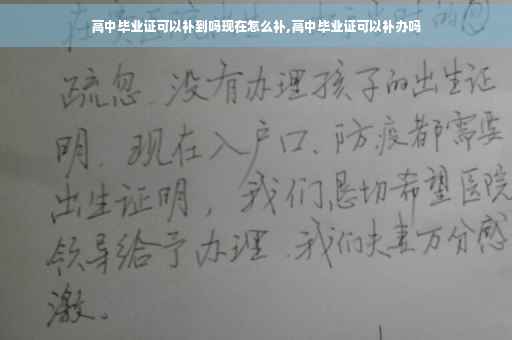 高中毕业证可以补到吗现在怎么补,高中毕业证可以补办吗
疏忽、没有办理孩子的出生证
明、现在入户口、防疫都需要
出生证明，我们恳切希望医院
领导给予办理、我们夫妻万分感
激。